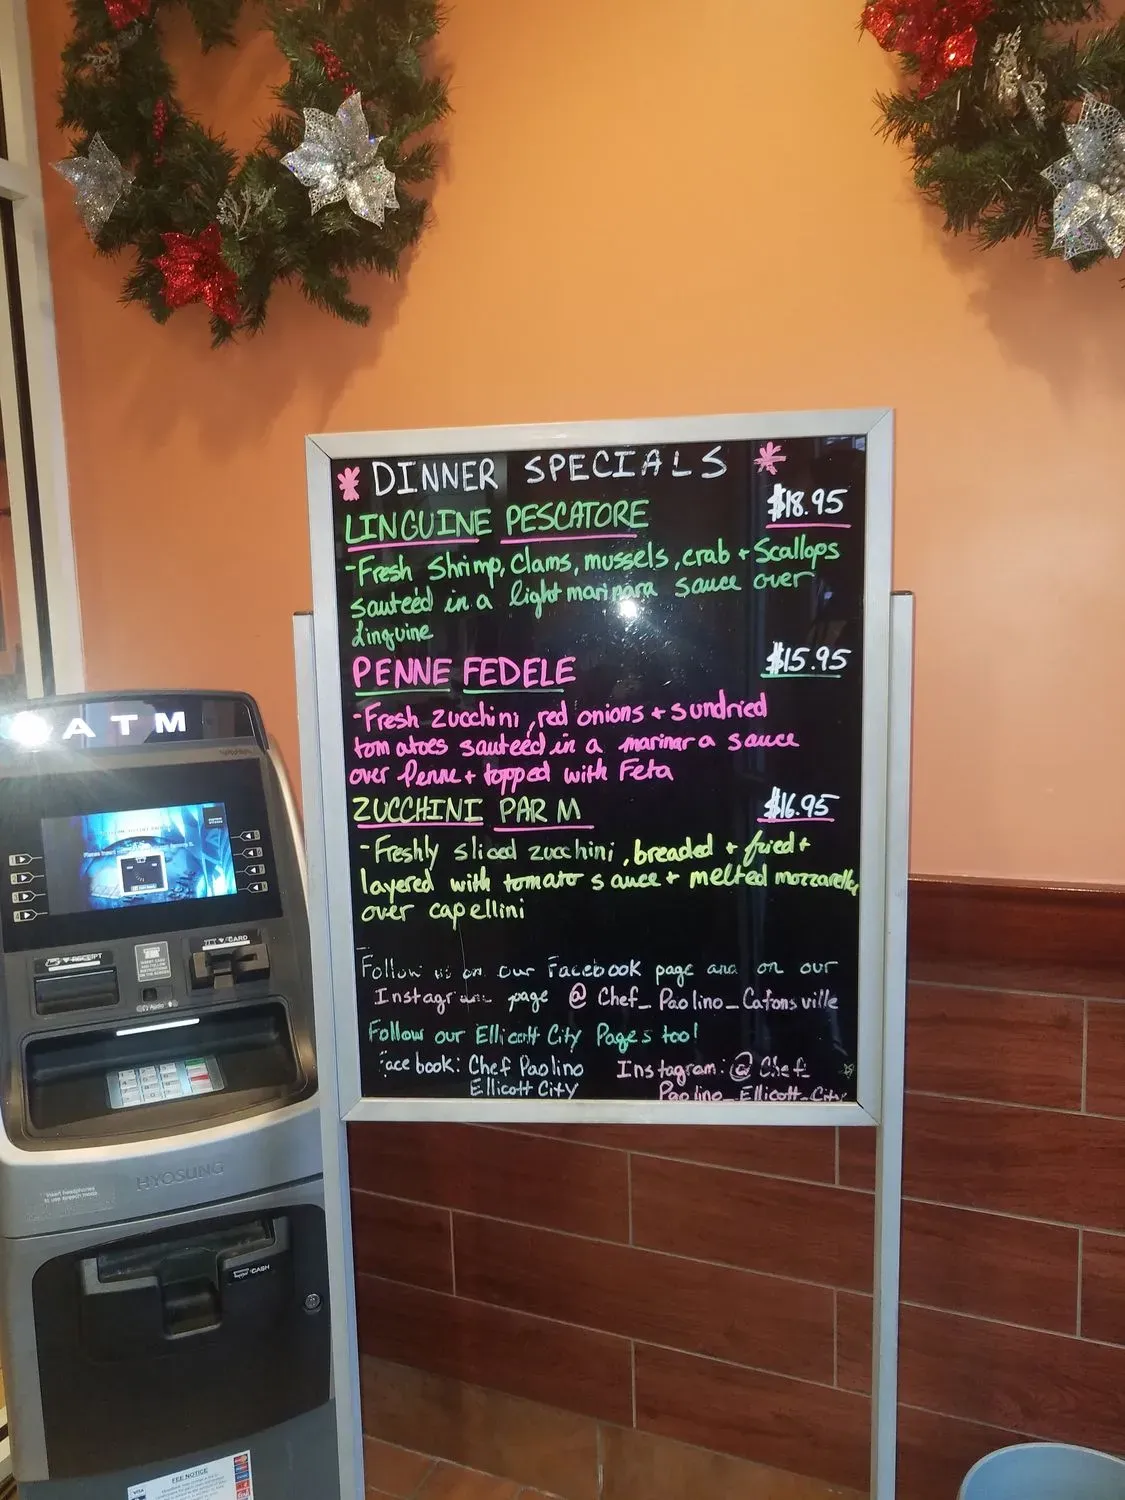 * DINNER SPECIALS *
LINGUINE PESCATORE $18.95
-Fresh Shrimp, Clams, mussels, crab + Scallops
sauteéd in a light marinara sauce over
Linguine
PENNE FEDELE $15.95
-Fresh zucchini, red onions + sundried
tomatoes sauteéd in a marinara sauce
over Penne + topped with Feta
ZUCCHINI PARM $16.95
-Freshly sliced zucchini, breaded + fried +
layered with tomato sauce + melted mozzarella
over capellini
Follow us on our Facebook page and on our
Instagram page @ Chef_Paolino_Catonsville
Follow our Ellicott City Pages too!
Facebook: Chef Paolino Instagram: @ Chef_
Ellicott City Paolino_Ellicott_City
ATM
RECEIPT
CARD
Audio
HYOSUNG
Insert headphones
to use speech mode
CASH
FEE NOTICE
VISA